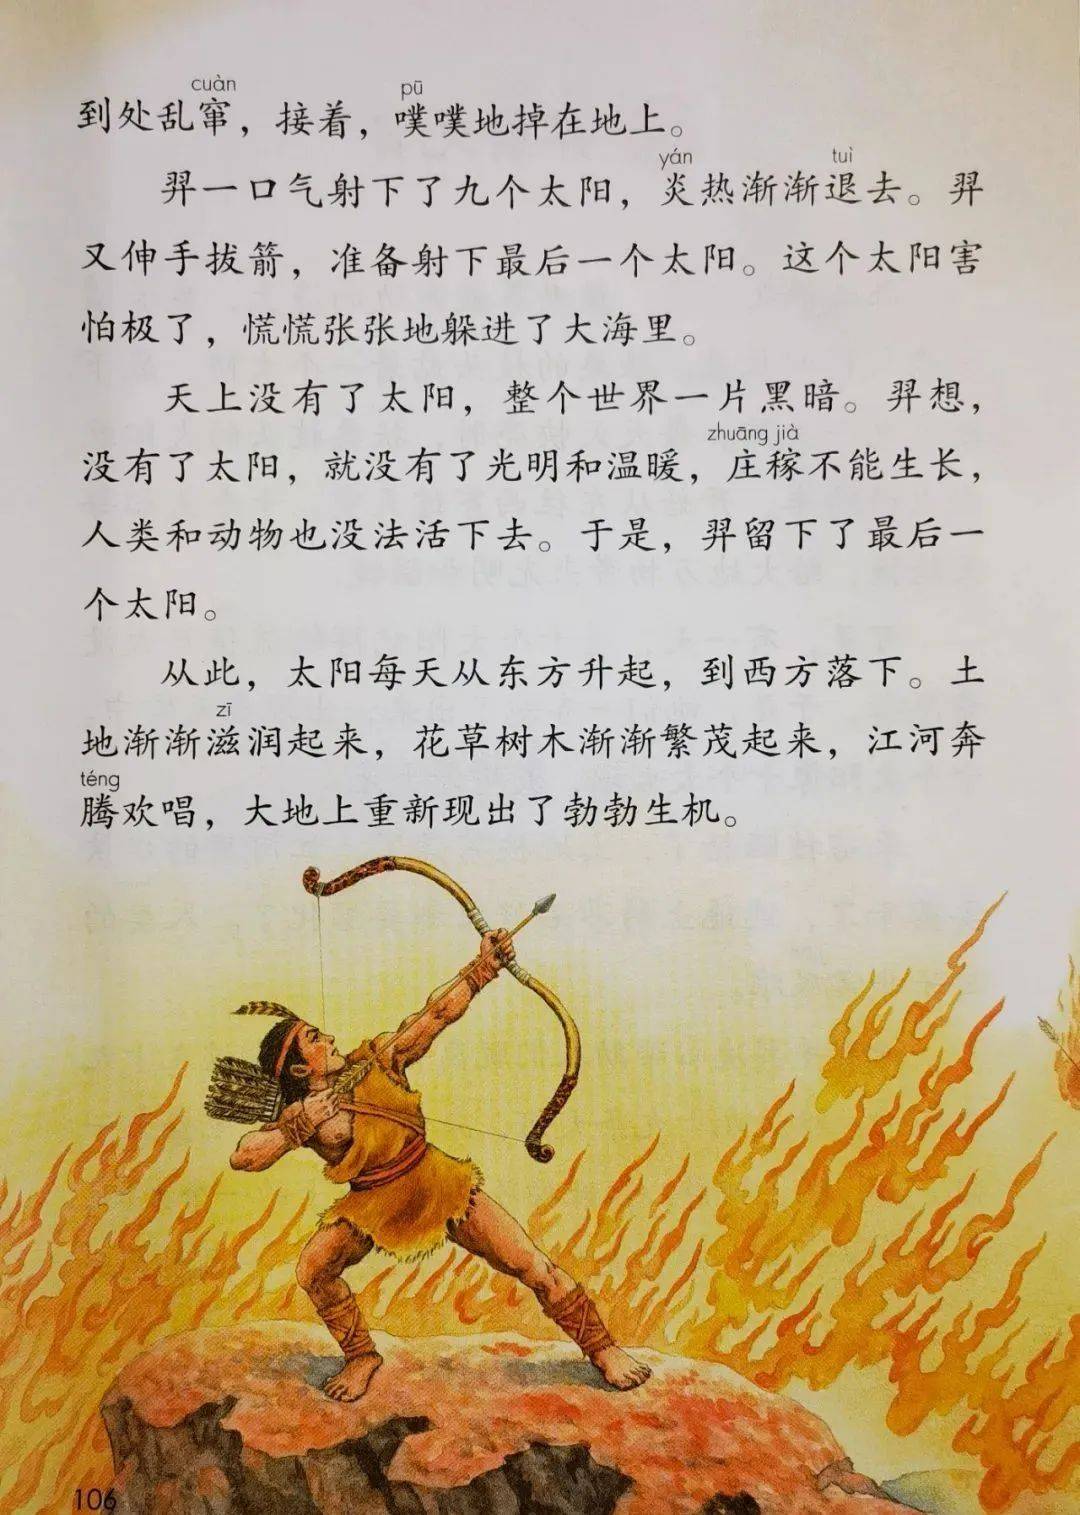 cuàn pū
到处乱窜，接着，噗噗地掉在地上。
yán tuì
羿一口气射下了九个太阳，炎热渐渐退去。羿
又伸手拔箭，准备射下最后一个太阳。这个太阳害
怕极了，慌慌张张地躲进了大海里。
天上没有了太阳，整个世界一片黑暗。羿想，
zhuāng jià
没有了太阳，就没有了光明和温暖，庄稼不能生长，
人类和动物也没法活下去。于是，羿留下了最后一
个太阳。
从此，太阳每天从东方升起，到西方落下。土
zī
地渐渐滋润起来，花草树木渐渐繁茂起来，江河奔
téng
腾欢唱，大地上重新现出了勃勃生机。
106